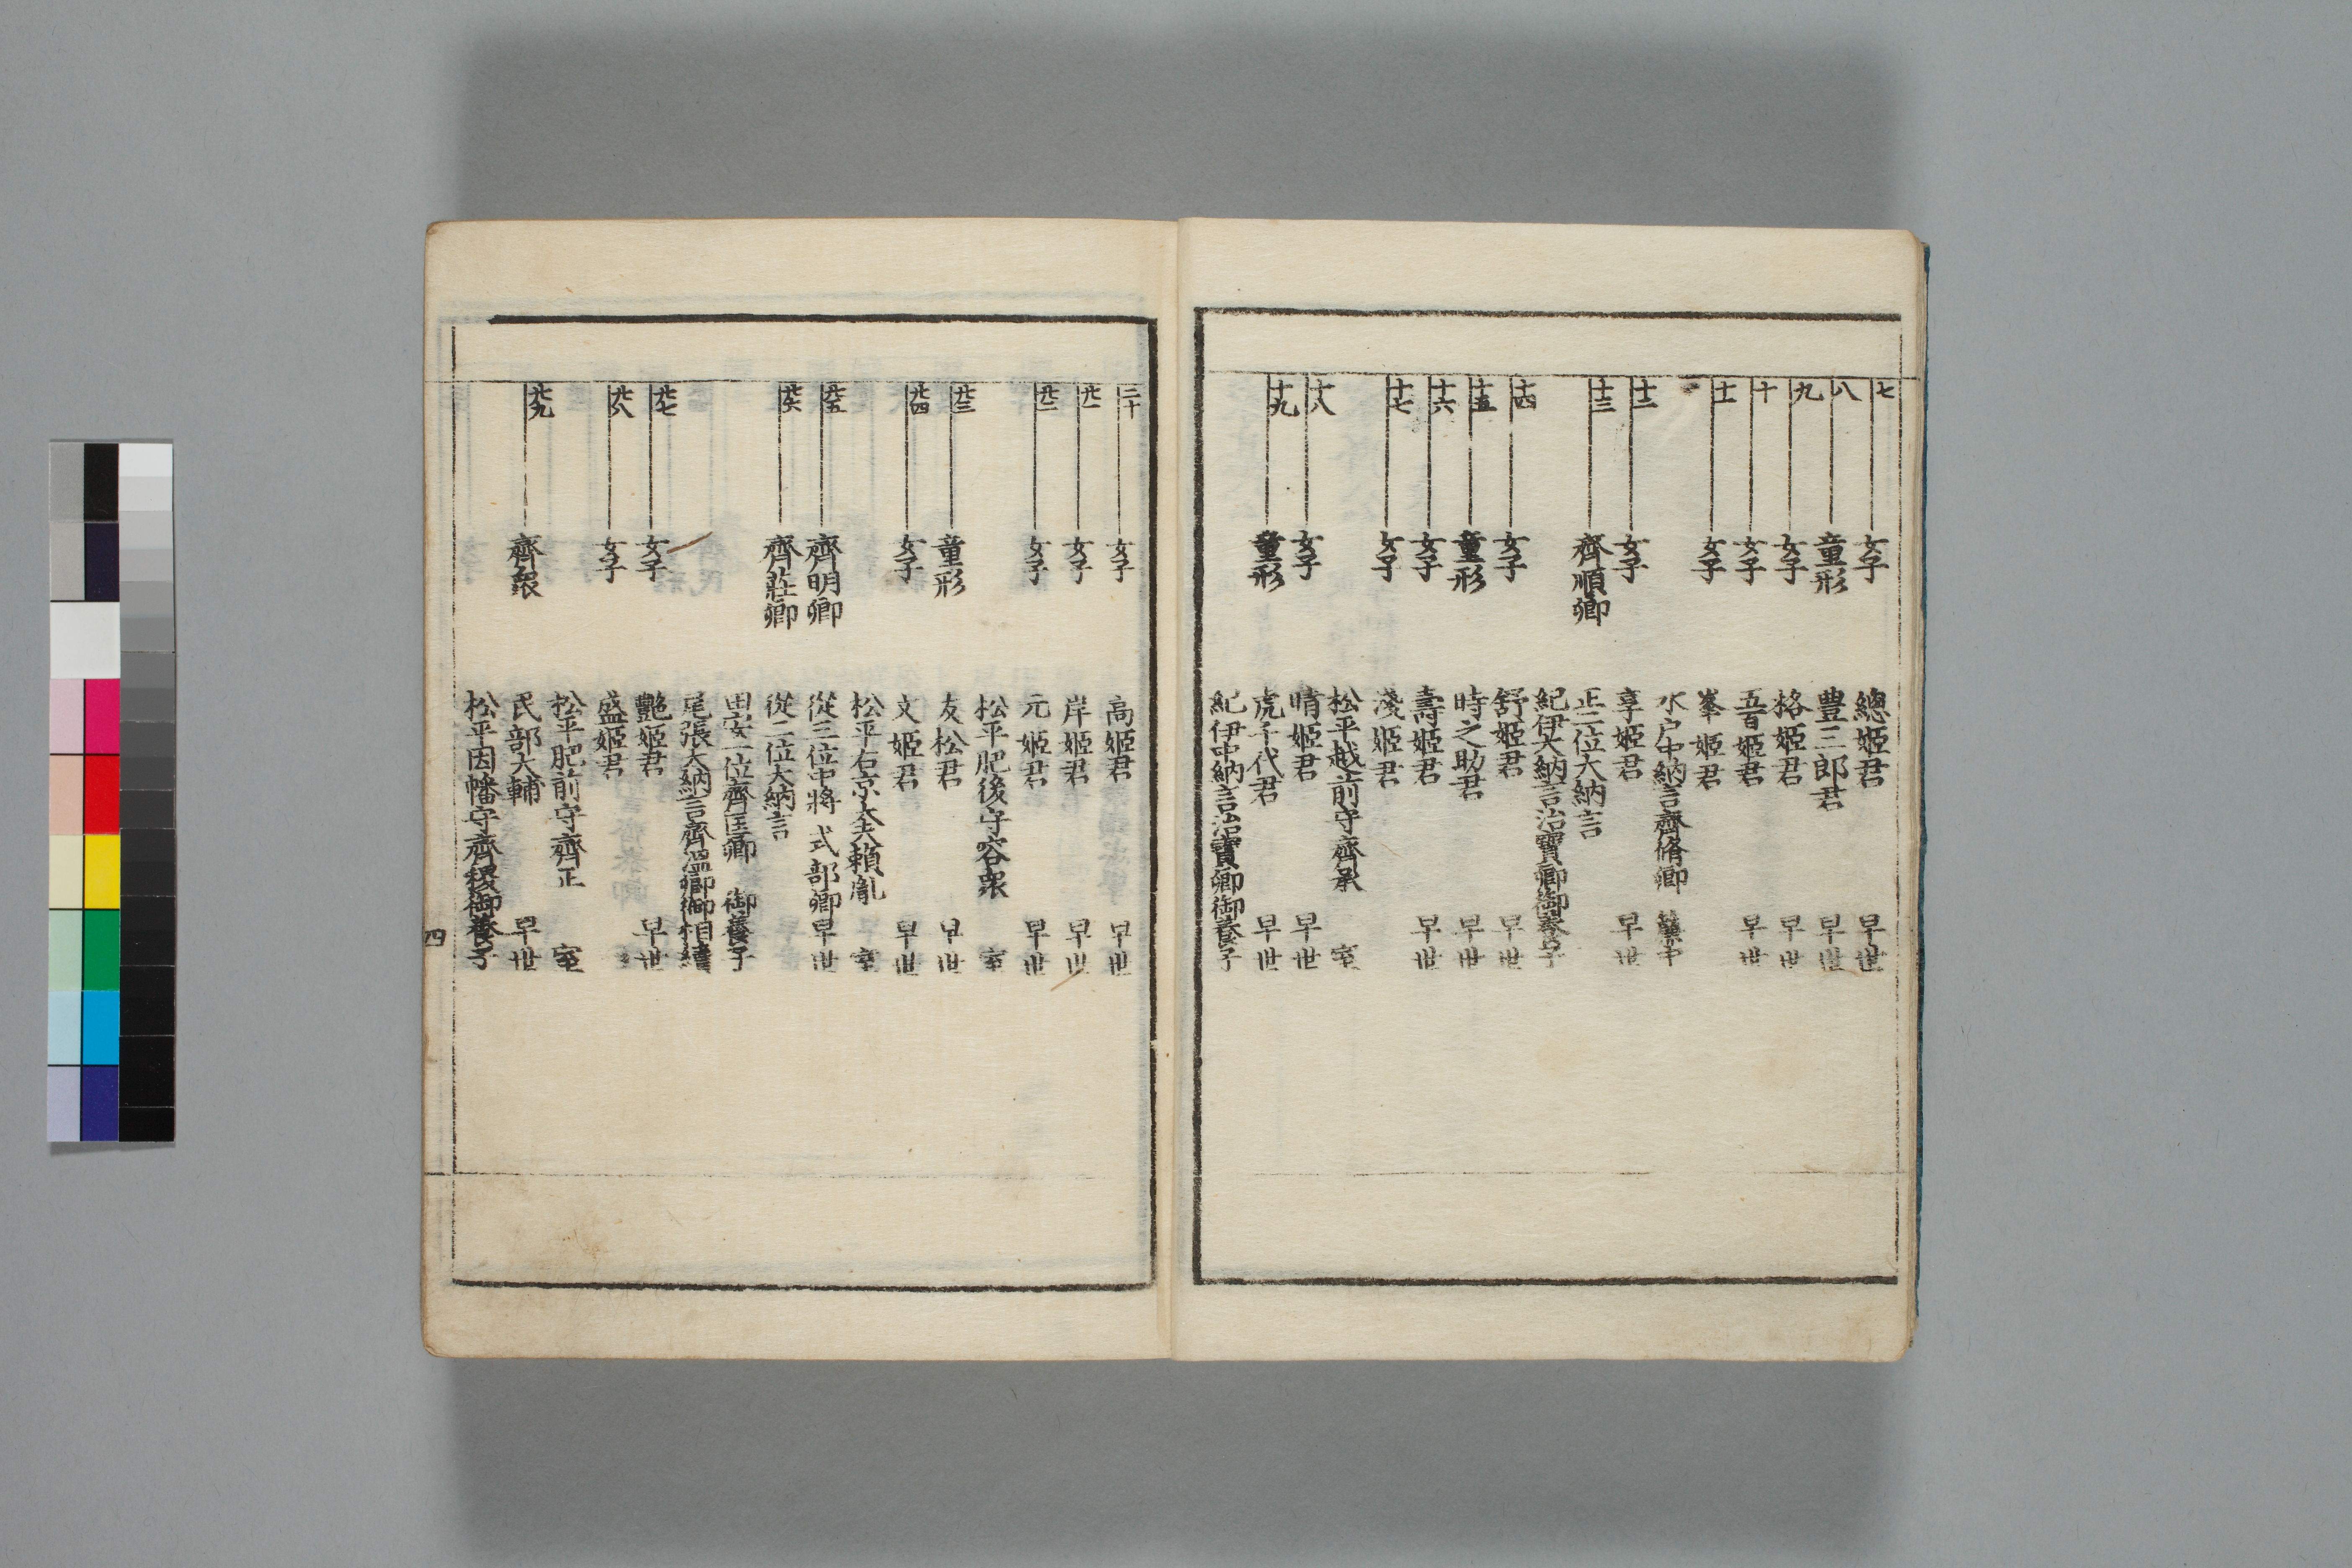 七 女子 總姬君 早世
八 童形 豊三郎君 早世
九 女子 格姬君 早世
十 女子 五百姬君 早世
十一 女子 峯姬君
水戸中納言齊脩卿 簾中
十二 女子 享姬君 早世
十三 齊順卿 正二位大納言
紀伊大納言治寶卿御養子
十四 女子 舒姬君 早世
十五 童形 時之助君 早世
十六 女子 壽姬君 早世
十七 女子 淺姬君
松平越前守齊承 室
十八 女子 晴姬君 早世
十九 童形 虎千代君 早世
紀伊中納言治寶卿御養子
二十 女子 高姬君 早世
廿一 女子 岸姬君 早世
廿二 女子 元姬君 早世
松平肥後守容衆 室
廿三 童形 友松君 早世
廿四 女子 文姬君 早世
松平右京大夫頼胤 室
廿五 齊明卿 從三位中將 式部卿 早世
廿六 齊莊卿 從二位大納言
田安一位齊匡卿 御養子
尾張大納言齊溫卿御相續
廿七 女子 艷姬君 早世
廿八 女子 盛姬君
松平肥前守齊正 室
廿九 齊衆 民部大輔 早世
松平因幡守齊稷御養子
四